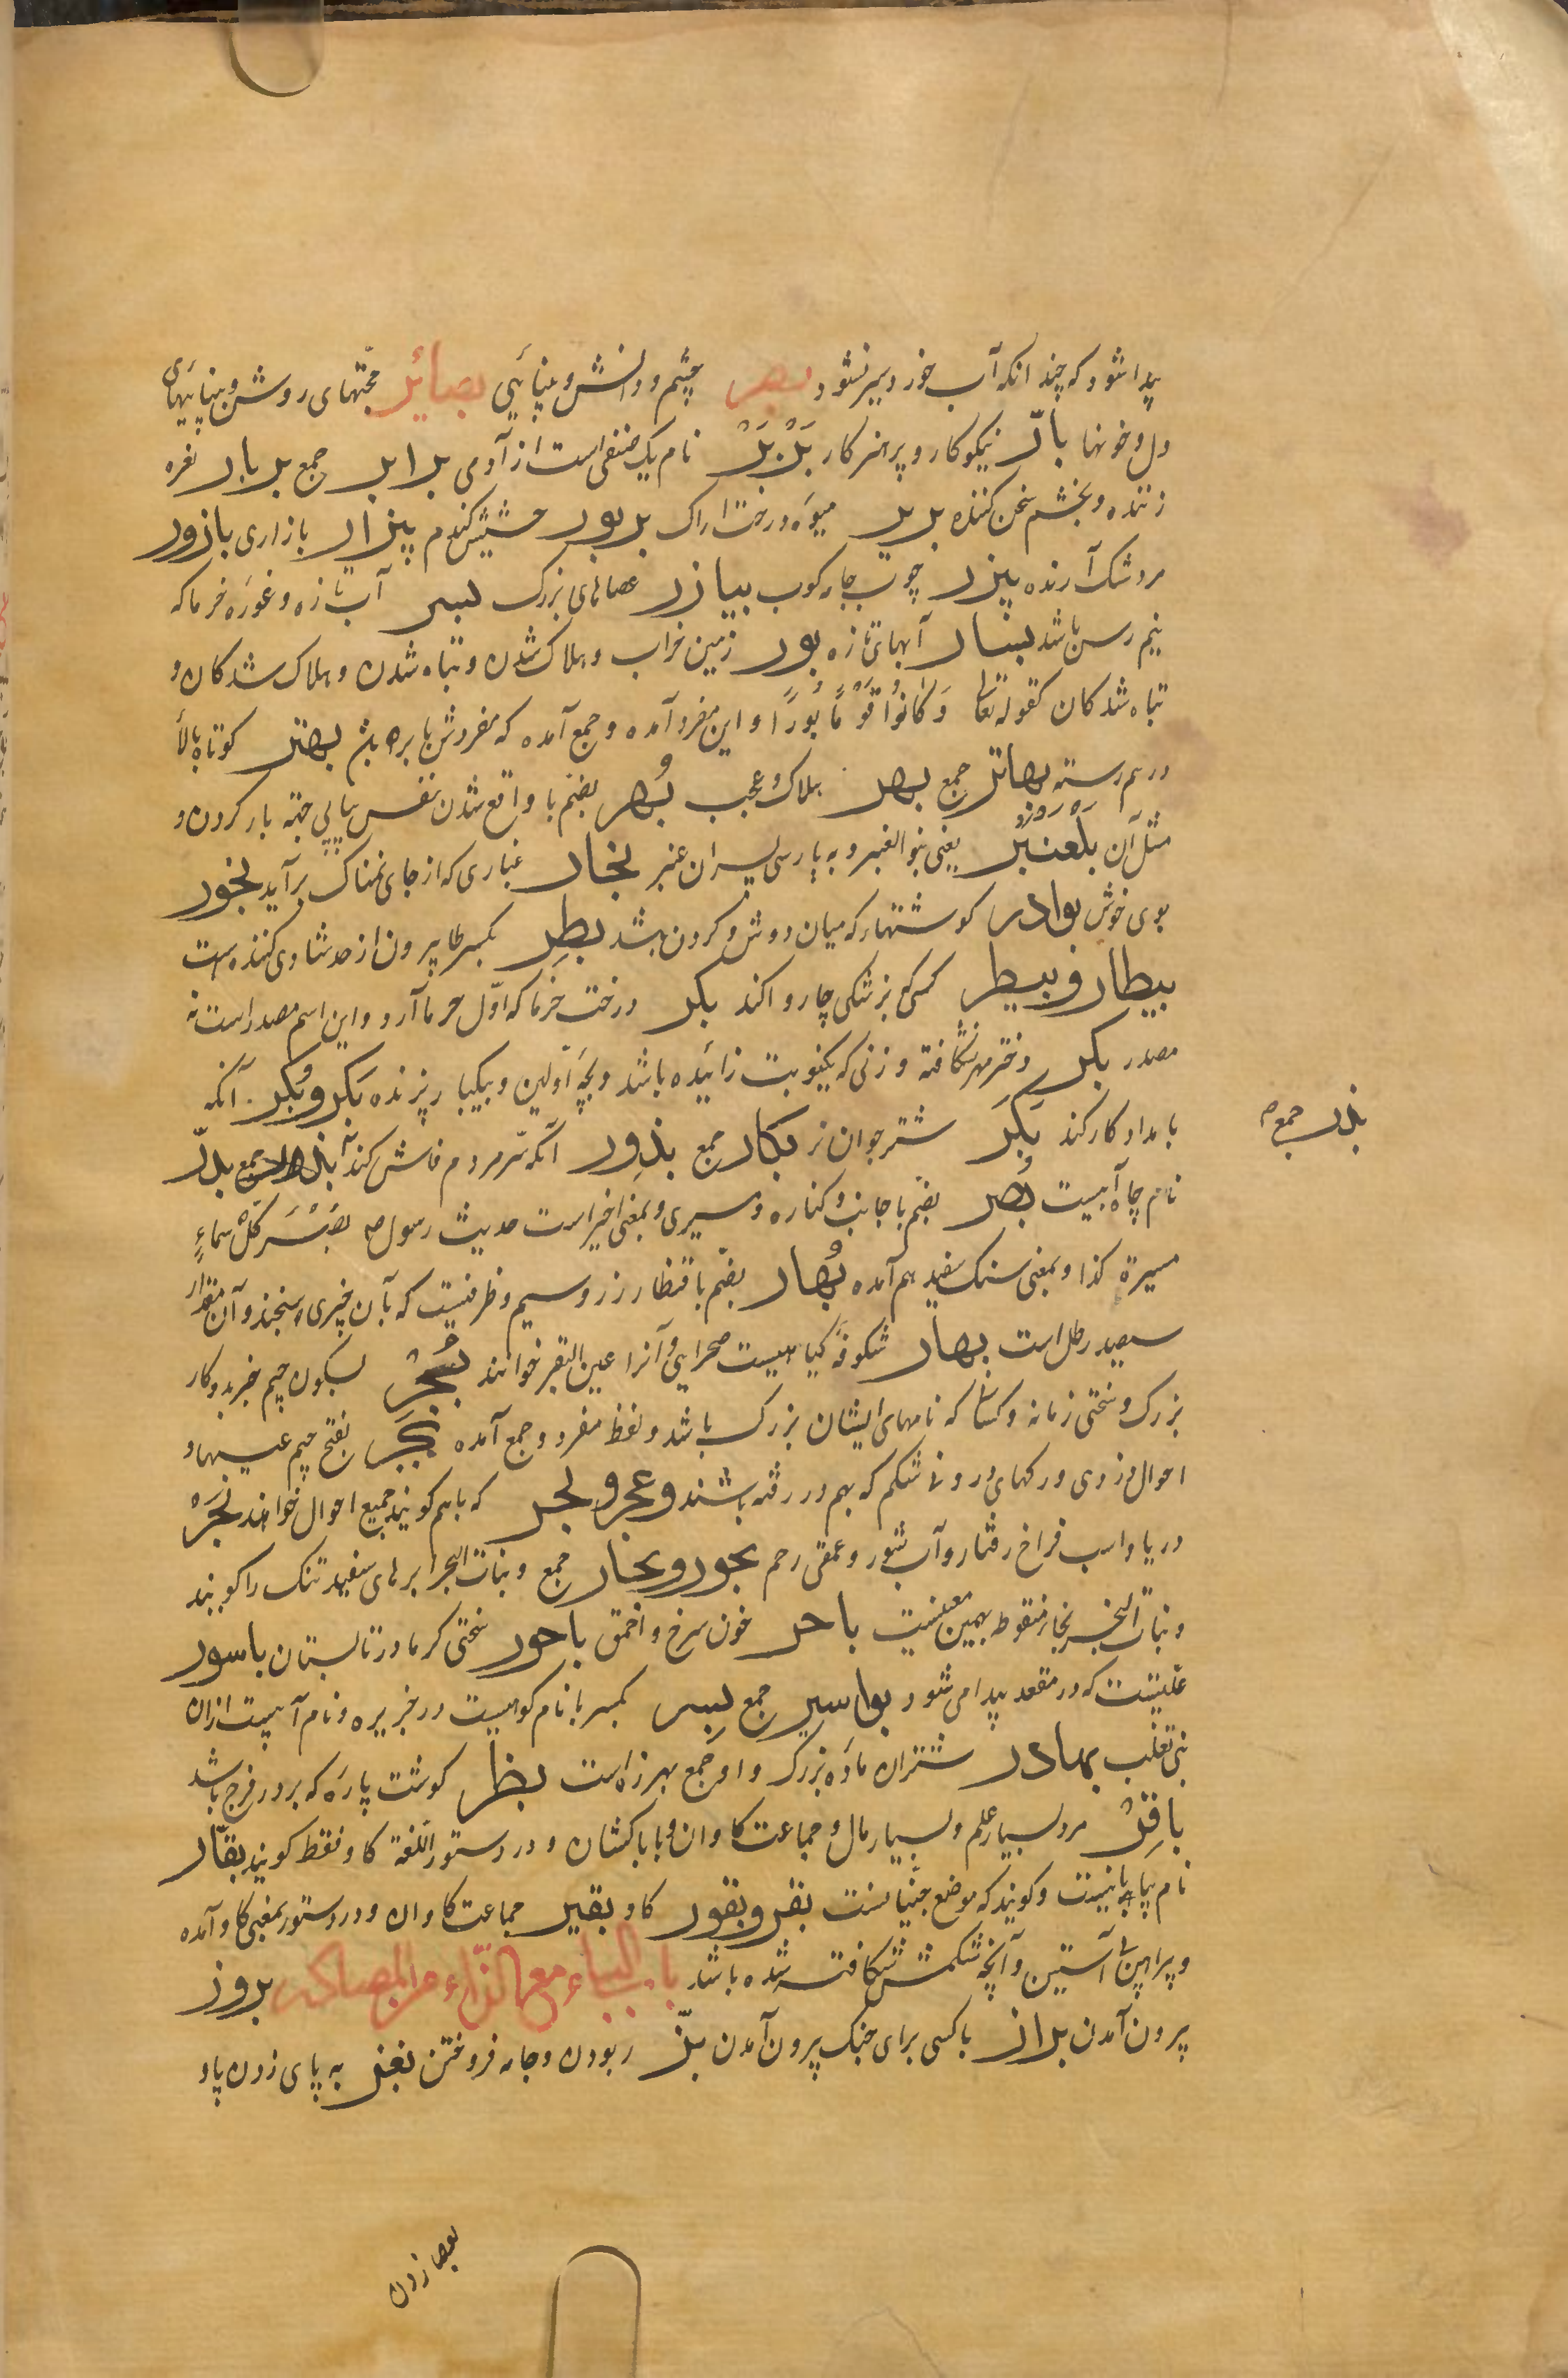 پیدا شود که چندانکه آب خورد سیر نشود بصر چشم و دانش و بینائی بصائر حجتهای روشن و بینائیهای
دل و خونها بارّ نیکوکار و پرهیزکار بَرْبَرْ نام یک صنفی است از آدمی برابر جمع بربار نعره
زننده و بخشم سخن کننده بریر میوه درخت اراک بربور حشیش کندم بیزار بازاری بازور
مرد شک آرنده بیزر چوب جامه کوب بیازر عصاهای بزرک بسر آب تازه و غوره خرما که
نیم رس باشد بسار آبهای تازه بور زمین خراب و هلاک شدن و تباه شدن و هلاک شدکان و
تباه شدکان کقوله تعا وَکَانُوا قَوْمًا بُورًا و این مفرد آمده و جمع آمده که مفردش بایر باشد بهتر کوتاه بالا
درهم رسته بهاتر جمع بهر هلاک و عجب بُهر بضم با واقع شدن نفس پیاپی جهة بار کردن و
مثل آن بلعنبر یعنی بنو العنبر و به پارسی پسران عنبر بخار غباری که از جای نمناک برآید بخور
بوی خوش بوادر کوشتها که میان دوش و کردن باشد بطِر بکسر طا بیرون از حد شادی کننده است
بیطار و بیطر کسی که بزشکی چاروا کند بکر درخت خرما که اوّل خرما آرد و این اسم مصدر است نه
مصدر بکر دختر مهر نشکافته و زنی که یکنوبت زائیده باشد و بچه اوّلین و یکبار پزنده بَکر و بُکر آنکه
بامداد کار کند بَکَر شتر جوان نر بکار جمع بذور آنکه سرّ مردم فاش کند بذر جمع بدّر
بذر جمع ص
نام چاه آبیست بُصر بضم با جانب و کناره و سیری و بمعنی اخیر است حدیث رسول ص بُصْر کلّ سماءٍ
مسیرة کذا و بمعنی سنک سفید هم آمده بُهار بضم با قنطار زر و سیم و ظرفیست که بآن چیزی سنجند و آن مقدار
سیصد رطل است بهار شکوفه کیاهیست صحرایی و آنرا عین البقر خوانند بُجْر بسکون جیم خبر بد و کار
بزرک و سختی زمانه و کسا که نامهای ایشان بزرک باشد و لفظ مفرد و جمع آمده بُجَر بفتح جیم عیبها و
احوال دزدی و رکهای درون شکم که بهم در رفته باشند و عجر و بجر که باهم کویند جمیع احوال خوانند بَحر
دریا و اسب فراخ رفتار و آب شور و عمقی رحم بحور و بحار جمع و بنات البحر ابرهای سفید تنک را کویند
و بنات البخر بخار منقوط بهمین معنیست باحر خون سرخ و احمق باحور سختی کرما در تابستان باسور
علّیتست که در مقعد پیدا می شود بواسیر جمع بِسر بکسر با نام کوهیست در جزیره و نام آبیست ازان
بنی تغلب بهادر شتران ماده بزرک و او جمع بهزره است بظر کوشت پاره که بر در فرج باشد
باقِرْ مرد بسیار علم و بسیار مال و جماعت کاوان و با باکشان و در دستور اللغة کاو فقط کویند بقّار
نام بیابانیست و کویند که موضع جنّیانست بقر و بقور کاو بقیر جماعت کاوان و در دستور بمعنی کاو آمده
و پیراهن بی آستین و آنچه شکمش شکافته شده باشد باب الباء مع الزاء من المصادر بروز
بیرون آمدن براز با کسی برای جنک بیرون آمدن بزّ ربودن و جامه فروختن بغز به پای زدن یا و
بعصا زدن